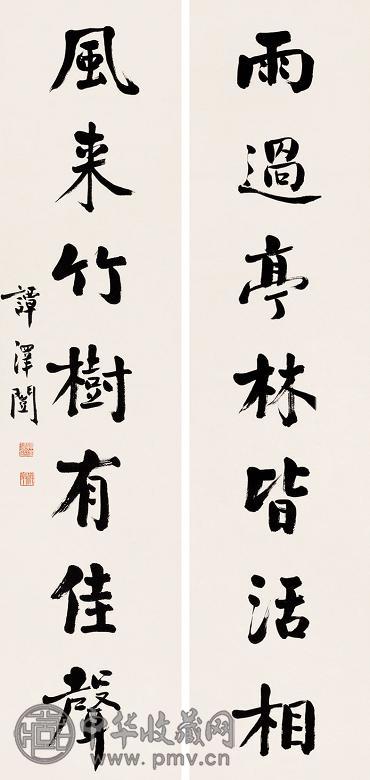 雨過亭林皆活相
風来竹樹有佳聲
譚澤闓
中华收藏网
www.pmv.cn